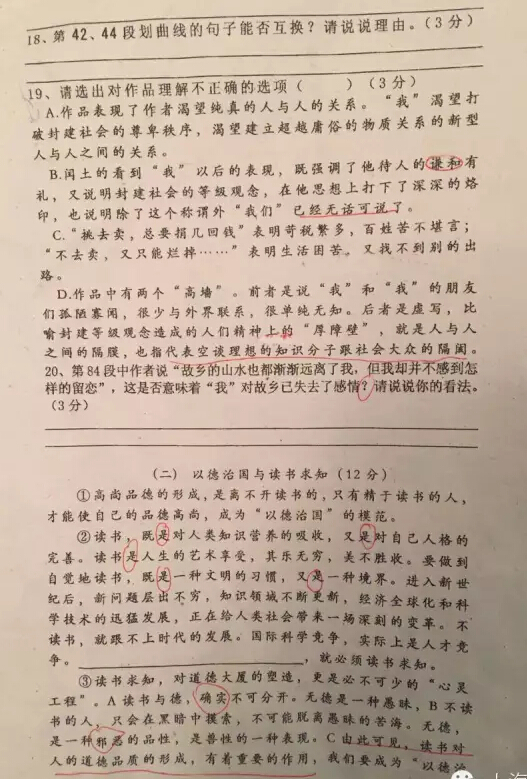 18、第 42、44 段划曲线的句子能否互换？请说说理由。（3 分）
19、请选出对作品理解不正确的选项（　　）（3 分）
A.作品表现了作者渴望纯真的人与人的关系。“我”渴望打
破封建社会的尊卑秩序，渴望建立超越庸俗的物质关系的新型
人与人之间的关系。
B.闰土的看到“我”以后的表现，既强调了他待人的谦和有
礼，又说明封建社会的等级观念，在他思想上打下了深深的烙
印，也说明除了这个称谓外“我们”已经无话可说了。
C.“挑去卖，总要捐几回钱”表明苛税繁多，百姓苦不堪言；
“不去卖，又只能烂掉……”表明生活困苦。又找不到别的出
路。
D.作品中有两个“高墙”。前者是说“我”和“我”的朋友
们孤陋寡闻，很少与外界联系，很单纯无知。后者是虚写，比
喻封建等级观念造成的人们精神上的“厚障壁”，就是人与人
之间的隔膜，也指代表空谈理想的知识分子跟社会大众的隔阂。
20、第 84 段中作者说“故乡的山水也都渐渐远离了我，但我却并不感到怎
样的留恋”，这是否意味着“我”对故乡已失去了感情？请说说你的看法。
（3 分）
（二） 以德治国与读书求知（12 分）
①高尚品德的形成，是离不开读书的，只有精于读书的人，
才能使自己的品德高尚，成为“以德治国”的模范。
②读书，既是对人类知识营养的吸收，又是对自己人格的
完善。读书是人生的艺术享受，其乐无穷，美不胜收。要做到
自觉地读书，既是一种文明的习惯，又是一种境界。进入新世
纪后，新问题层出不穷，知识领域不断更新，经济全球化和科
学技术的迅猛发展，正在给人类社会带来一场深刻的变革。不
读书，就跟不上时代的发展。国际科学竞争，实际上是人才竞
争。____________________，就必须读书求知。
③读书求知，对道德大厦的塑造，更是必不可少的“心灵
工程”。A 读书与德，确实不可分开。无德是一种愚昧，B 不读
书的人，只会在黑暗中摸索，不可能脱离愚昧的苦海。无德，
是一种邪恶的品性，是兽性的一种表现。C 由此可见，读书对
人的道德品质的形成，有着重要的作用，我们要成为“以德治